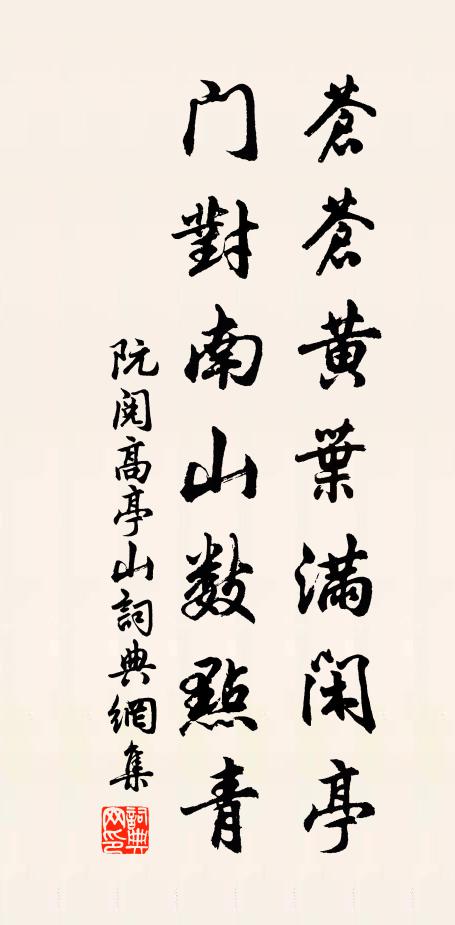 蒼蒼黃葉滿閑亭
門對南山數點青
阮閱高亭山詞典網集
詞典網印